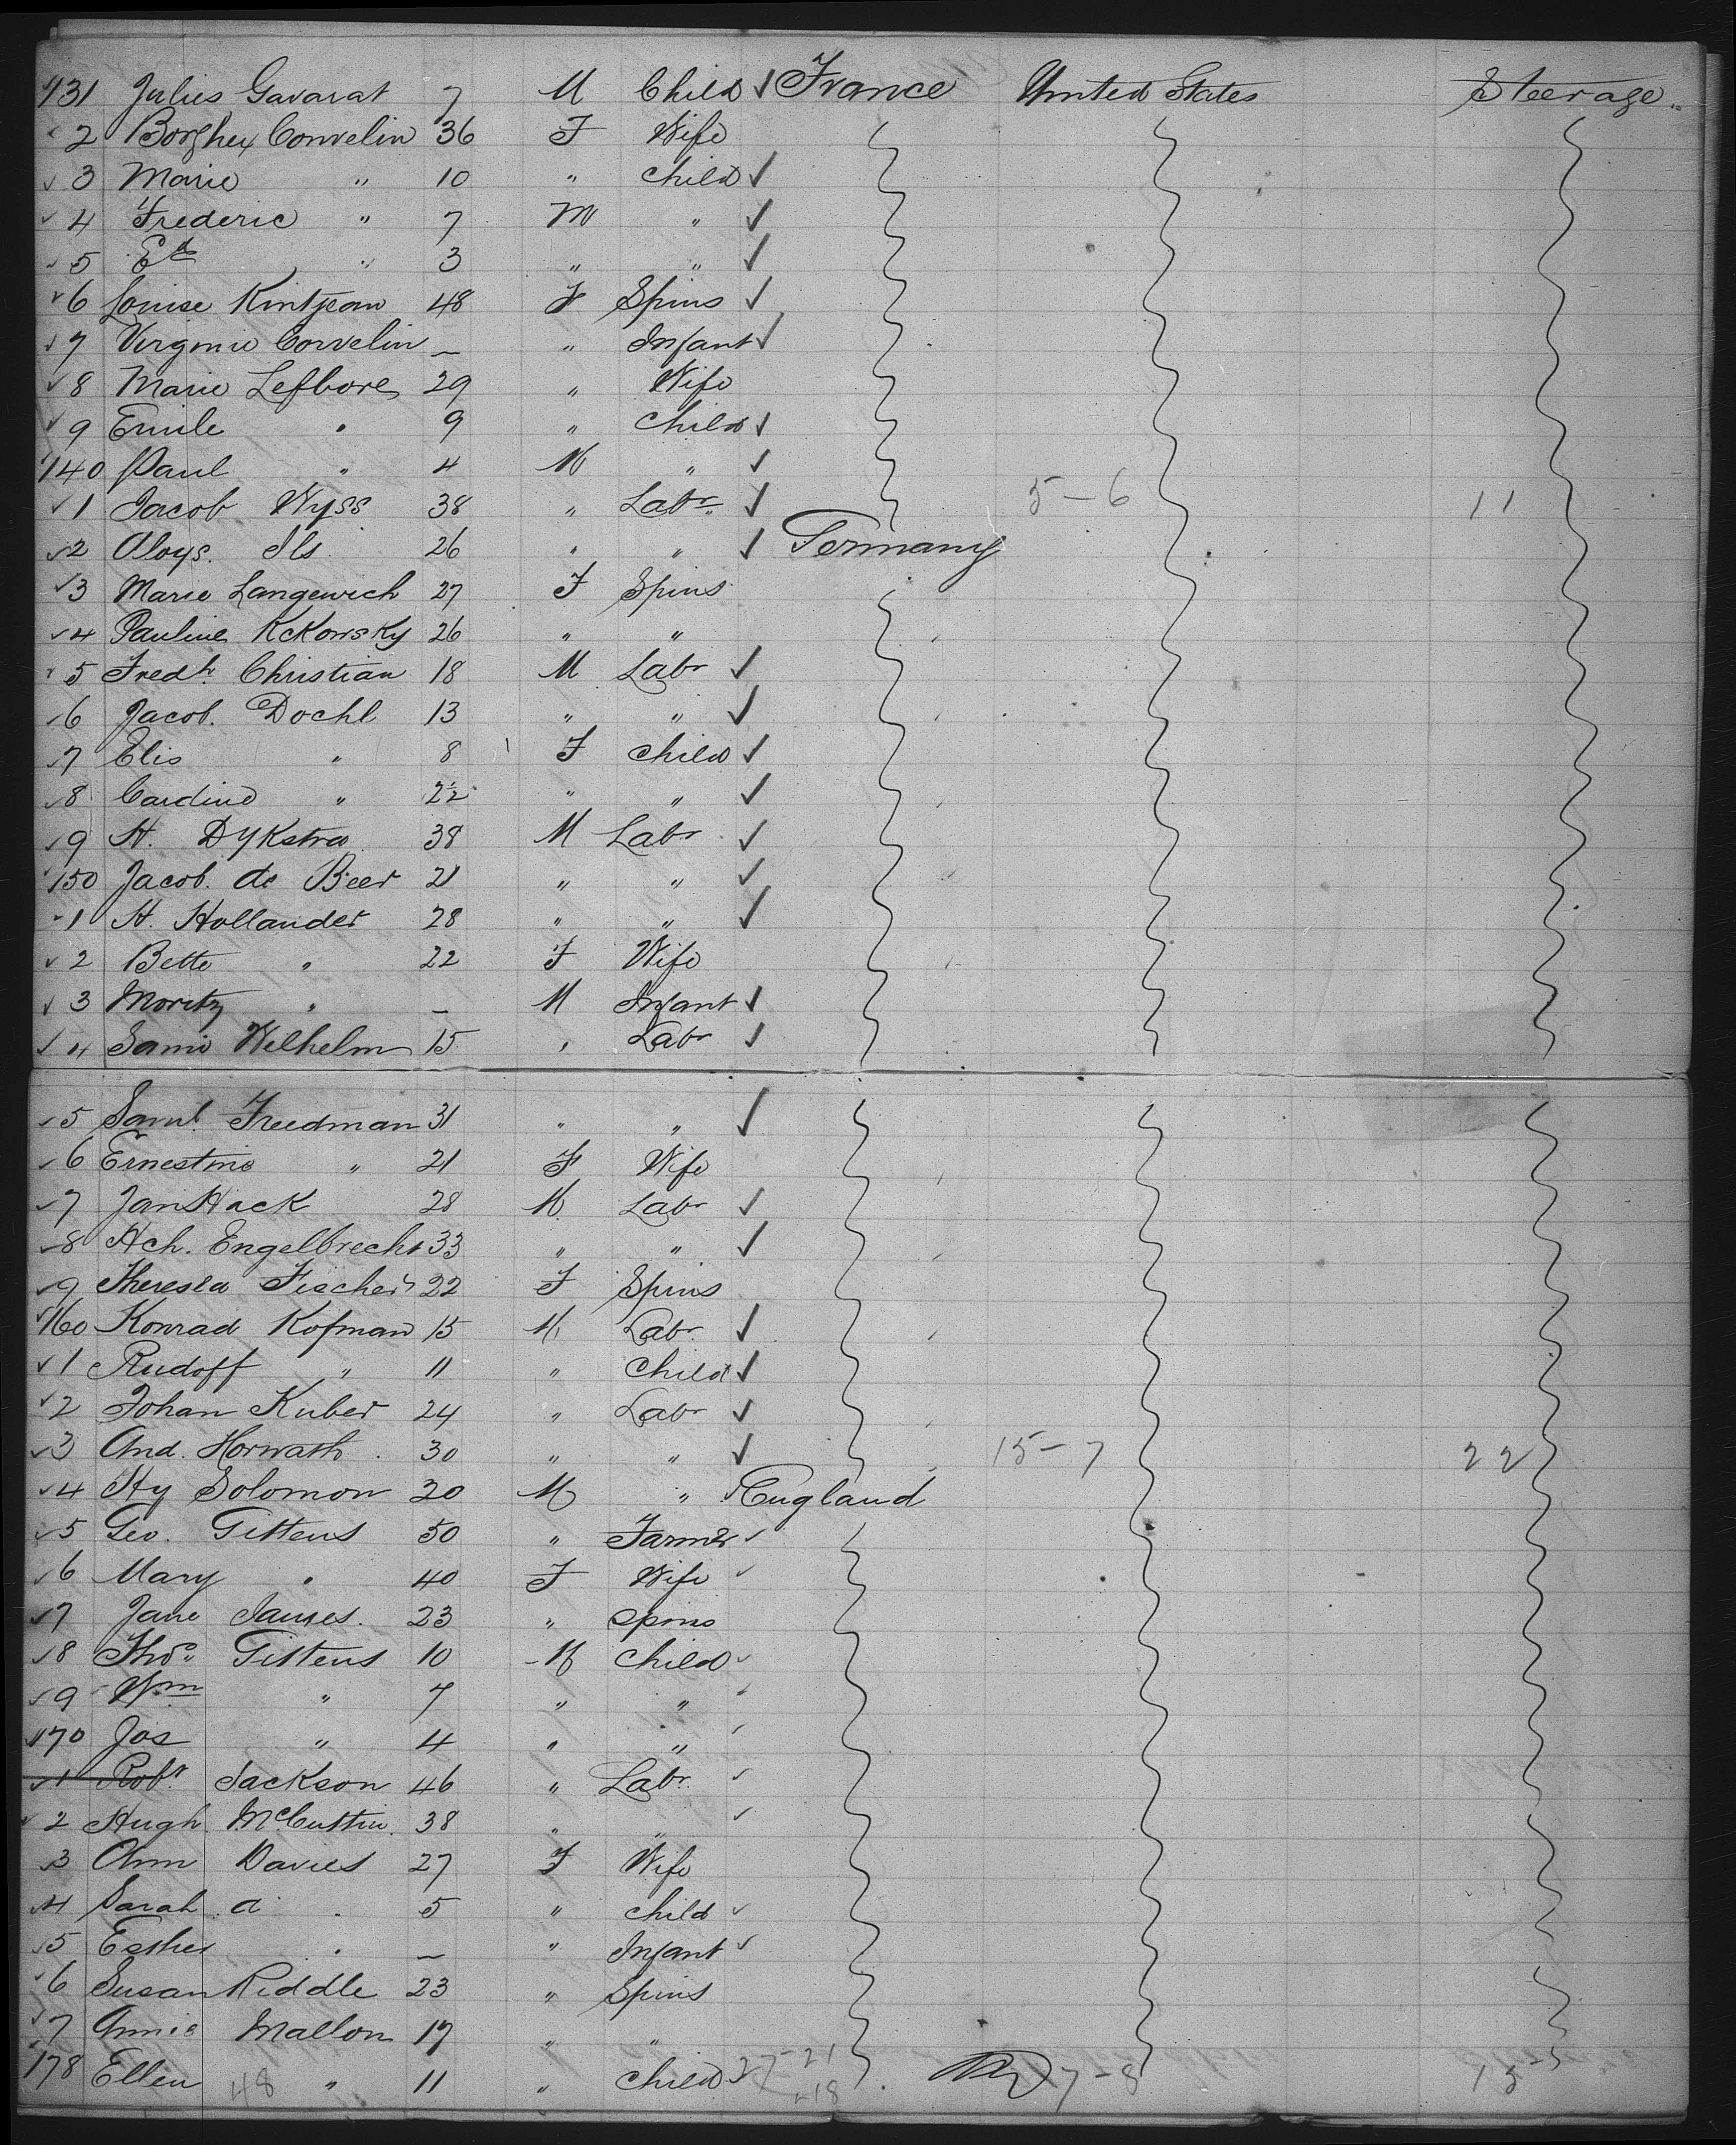 131 Julius Gavarat 7 M Child ✓ France United States Steerage
2 Borghex Convelin 36 F Wife
3 Marie " 10 " Child ✓
4 Frederic " 7 M " ✓
5 Ed " 3 " " ✓
6 Louise Kintjean 48 F Spins ✓
7 Virginie Corvelin — " Infant ✓
8 Marie Lefbore 29 " Wife
9 Emile " 9 " Child ✓
140 Paul " 4 M " ✓
1 Jacob Wyss 38 " Labr ✓ 5-6 11
2 Aloys. Ils 26 " " ✓ Germany
3 Marie Langewich 27 F Spins
4 Pauline Kckowsky 26 " "
5 Fredk. Christian 18 M Labr ✓
6 Jacob. Dochl 13 " " ✓
7 Elis " 8 F Child ✓
8 Cardine " 2½ " " ✓
9 H. Dykstra 38 M Labr ✓
150 Jacob. de Beer 21 " " ✓
1 H. Hollander 28 " " ✓
2 Bette " 22 F Wife
3 Moritz " — M Infant ✓
4 Sami Wilhelm 15 " Labr ✓
5 Saml. Freedman 31 " " ✓
6 Ernestine " 21 F Wife
7 Jan Hack 28 M Labr ✓
8 Hch. Engelbrecht 33 " " ✓
9 Theresia Fischer 22 F Spins
160 Konrad Kofman 15 M Labr ✓
1 Rudoff " 11 " Child ✓
2 Johan Kuber 24 " Labr ✓
3 And. Horwath 30 " " ✓ 15-7 22
4 Hy Solomon 20 M " England
5 Geo. Tittens 50 " Farmer ✓
6 Mary " 40 F Wife ✓
7 Jane James. 23 " Spins
8 Thos. Tittens 10 M Child ✓
9 Wm " 7 " " ✓
170 Jos " 4 " " ✓
1 Robt. Jackson 46 " Labr ✓
2 Hugh McCuttin 38 " " ✓
3 Ann Davies 27 F Wife
4 Sarah a " 5 " Child ✓
5 Esther " — " Infant ✓
6 Susan Riddle 23 " Spins
7 Annie Mallon 17 " "
178 Ellen 48 " 11 " Child 27-21 7-8 15
-18